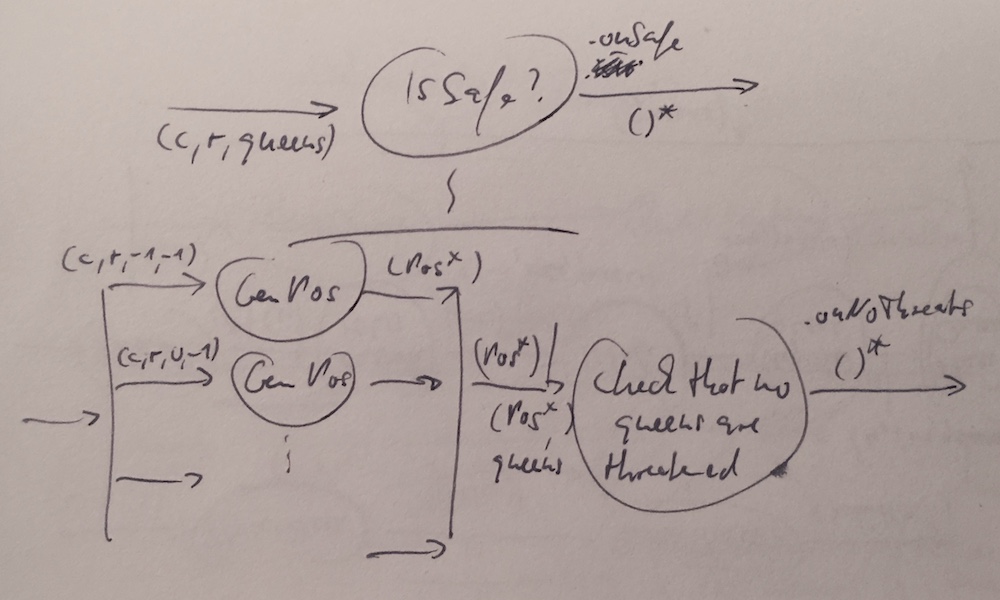 .onSafe
Is Safe?
(c, r, queens)
()*
(c, r, -1, -1)
Gen Pos
(Pos*)
(c, r, 0, -1)
Gen Pos
(Pos*)
(Pos*,
queens)
Check that no
queens are
threatened
.onNoThreats
()*